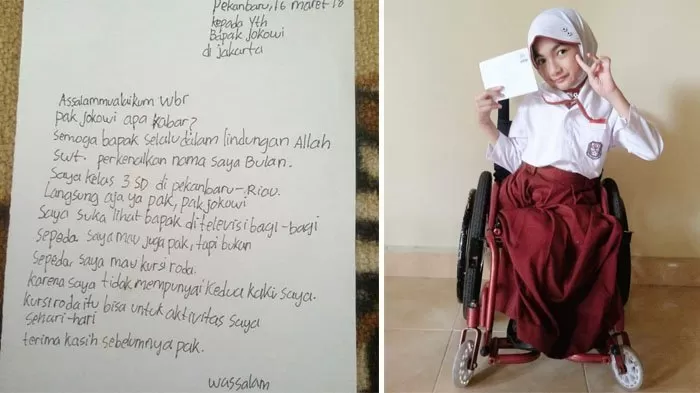 Pekanbaru, 16 maret 18
kepada Yth
Bapak Jokowi
di jakarta
Assalammualaikum Wbr
pak jokowi apa kabar?
Semoga bapak selalu dalam lindungan Allah
Swt. perkenalkan nama saya Bulan.
Saya kelas 3 SD di pekanbaru-Riau.
Langsung aja ya pak, pak jokowi
Saya suka lihat bapak di televisi bagi-bagi
sepeda saya mau juga pak, tapi bukan
sepeda. saya mau kursi roda.
karena saya tidak mempunyai kedua kaki saya.
kursi roda itu bisa untuk aktivitas saya
sehari-hari
terima kasih sebelumnya pak.
wassalam